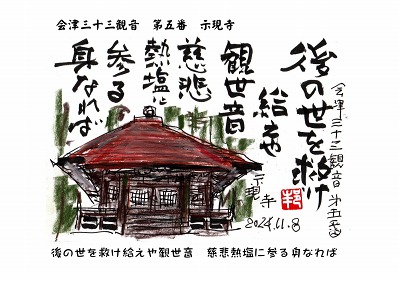 会津三十三観音　第五番　示現寺
後の世を救け
給えや
観世音
慈悲
熱塩に
参る
身なれば
会津三十三観音 第五番
示現寺
2024.11.8
後の世を救け給えや観世音　慈悲熱塩に参る身なれば